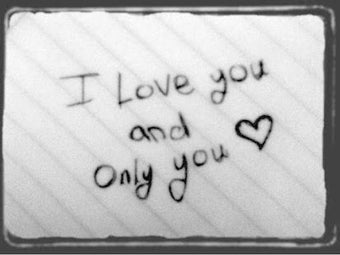 I Love you
and
Only you